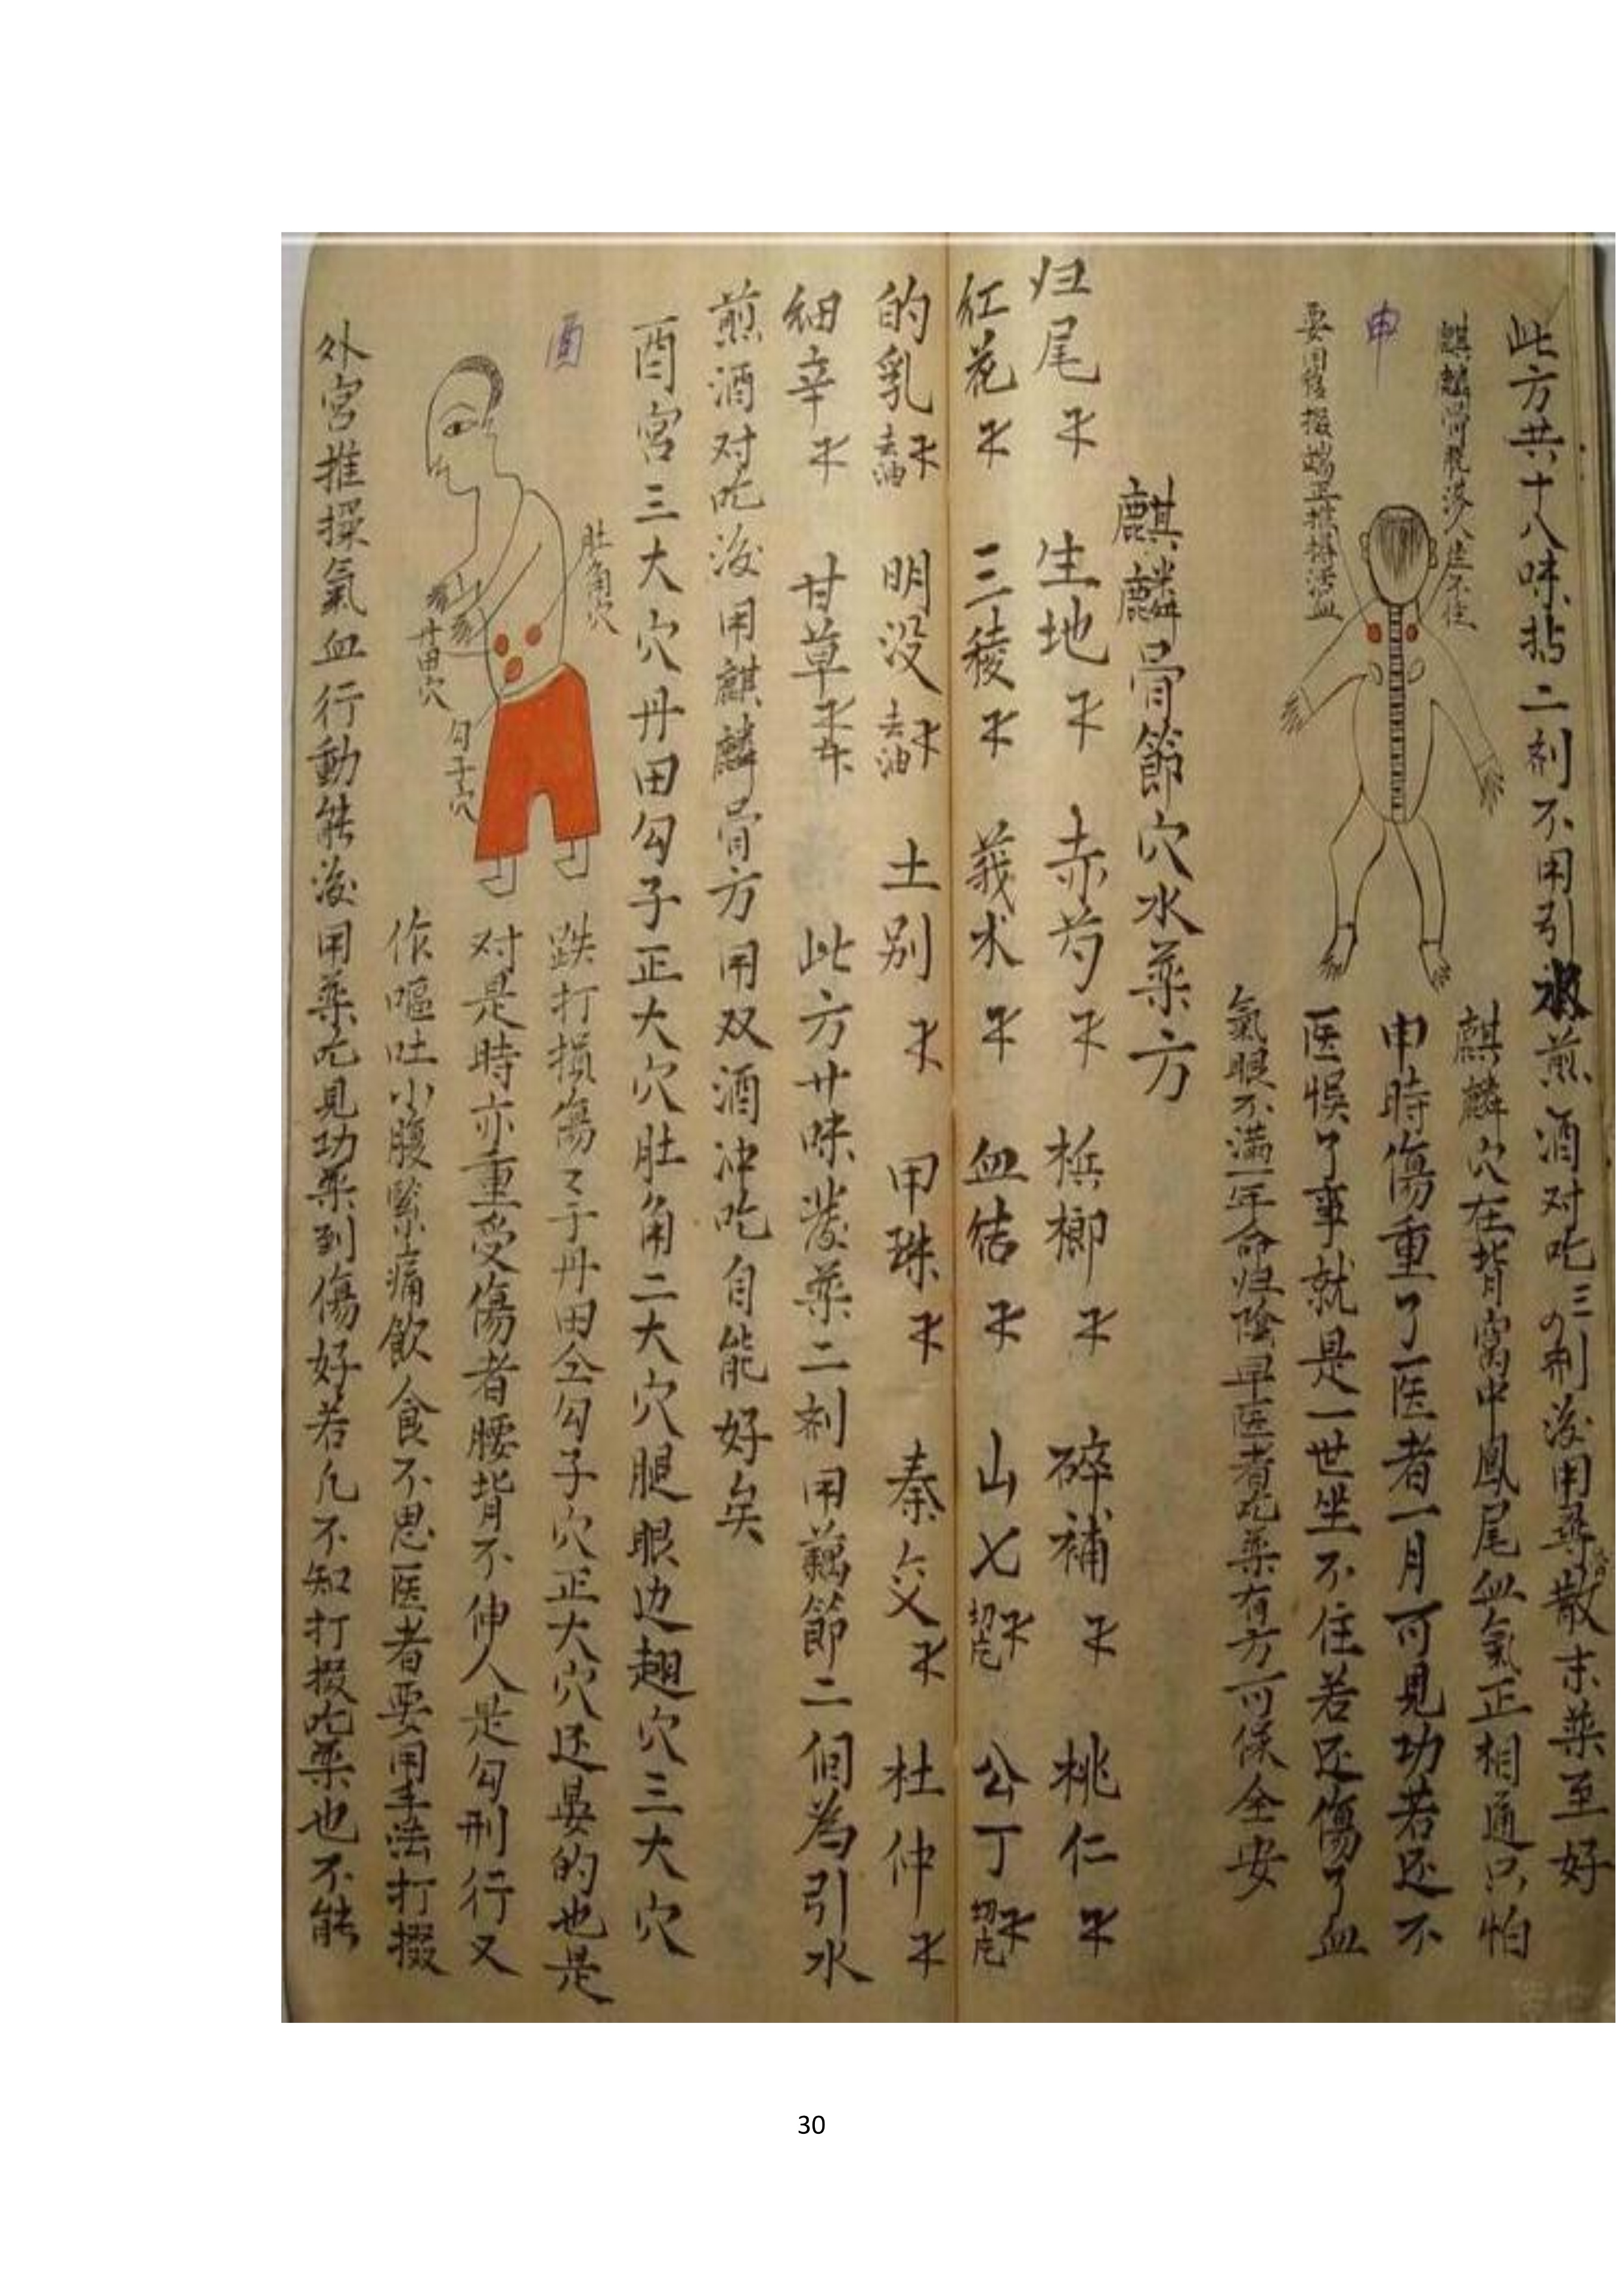 此方共十八味拈二剂不用引煎酒对吃三四剂後用藥散末藥至好
麒麟骨脱落人坐不住
申
要用後掇端正推揉活血
麒麟穴在背窝中鳳尾血氣正相通只怕
申時傷重了医者一月可見功若还不
医悮了事就是一世坐不住若还傷了血
氣眼不满一年命归陰早医者吃藥有方可保全安
麒麟骨節穴水藥方
归尾 生地 赤芍 槟榔 碎補 桃仁
红花 三稜 莪术 血结 山七 切片 公丁 切片
的乳 去油 明没 去油 土别 甲珠 秦艽 杜仲
細辛 甘草 此方廿味 藥二剂用藕節二個為引水
煎酒对吃後用麒麟骨方用双酒冲吃自能好矣
酉宮三大穴丹田勾子正大穴肚角二大穴腿眼边翅穴三大穴
酉
肚角穴
丹田穴
勾子穴
跌打損傷了于丹田仝勾子穴正大穴还是的也是
对是時亦重受傷者腰背不伸人是勾刑行又
作嘔吐小腹緊痛飲食不思医者要用手法打掇
外宮推揉氣血行動能後用藥吃見功藥到傷好若凡不知打掇吃藥也不能
30